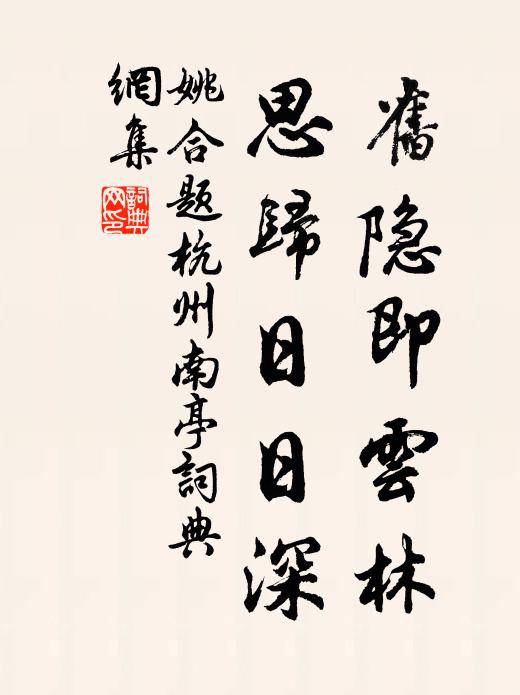 舊隐即雲林
思歸日日深
姚合题杭州南亭詞典
網集
詞典
网印